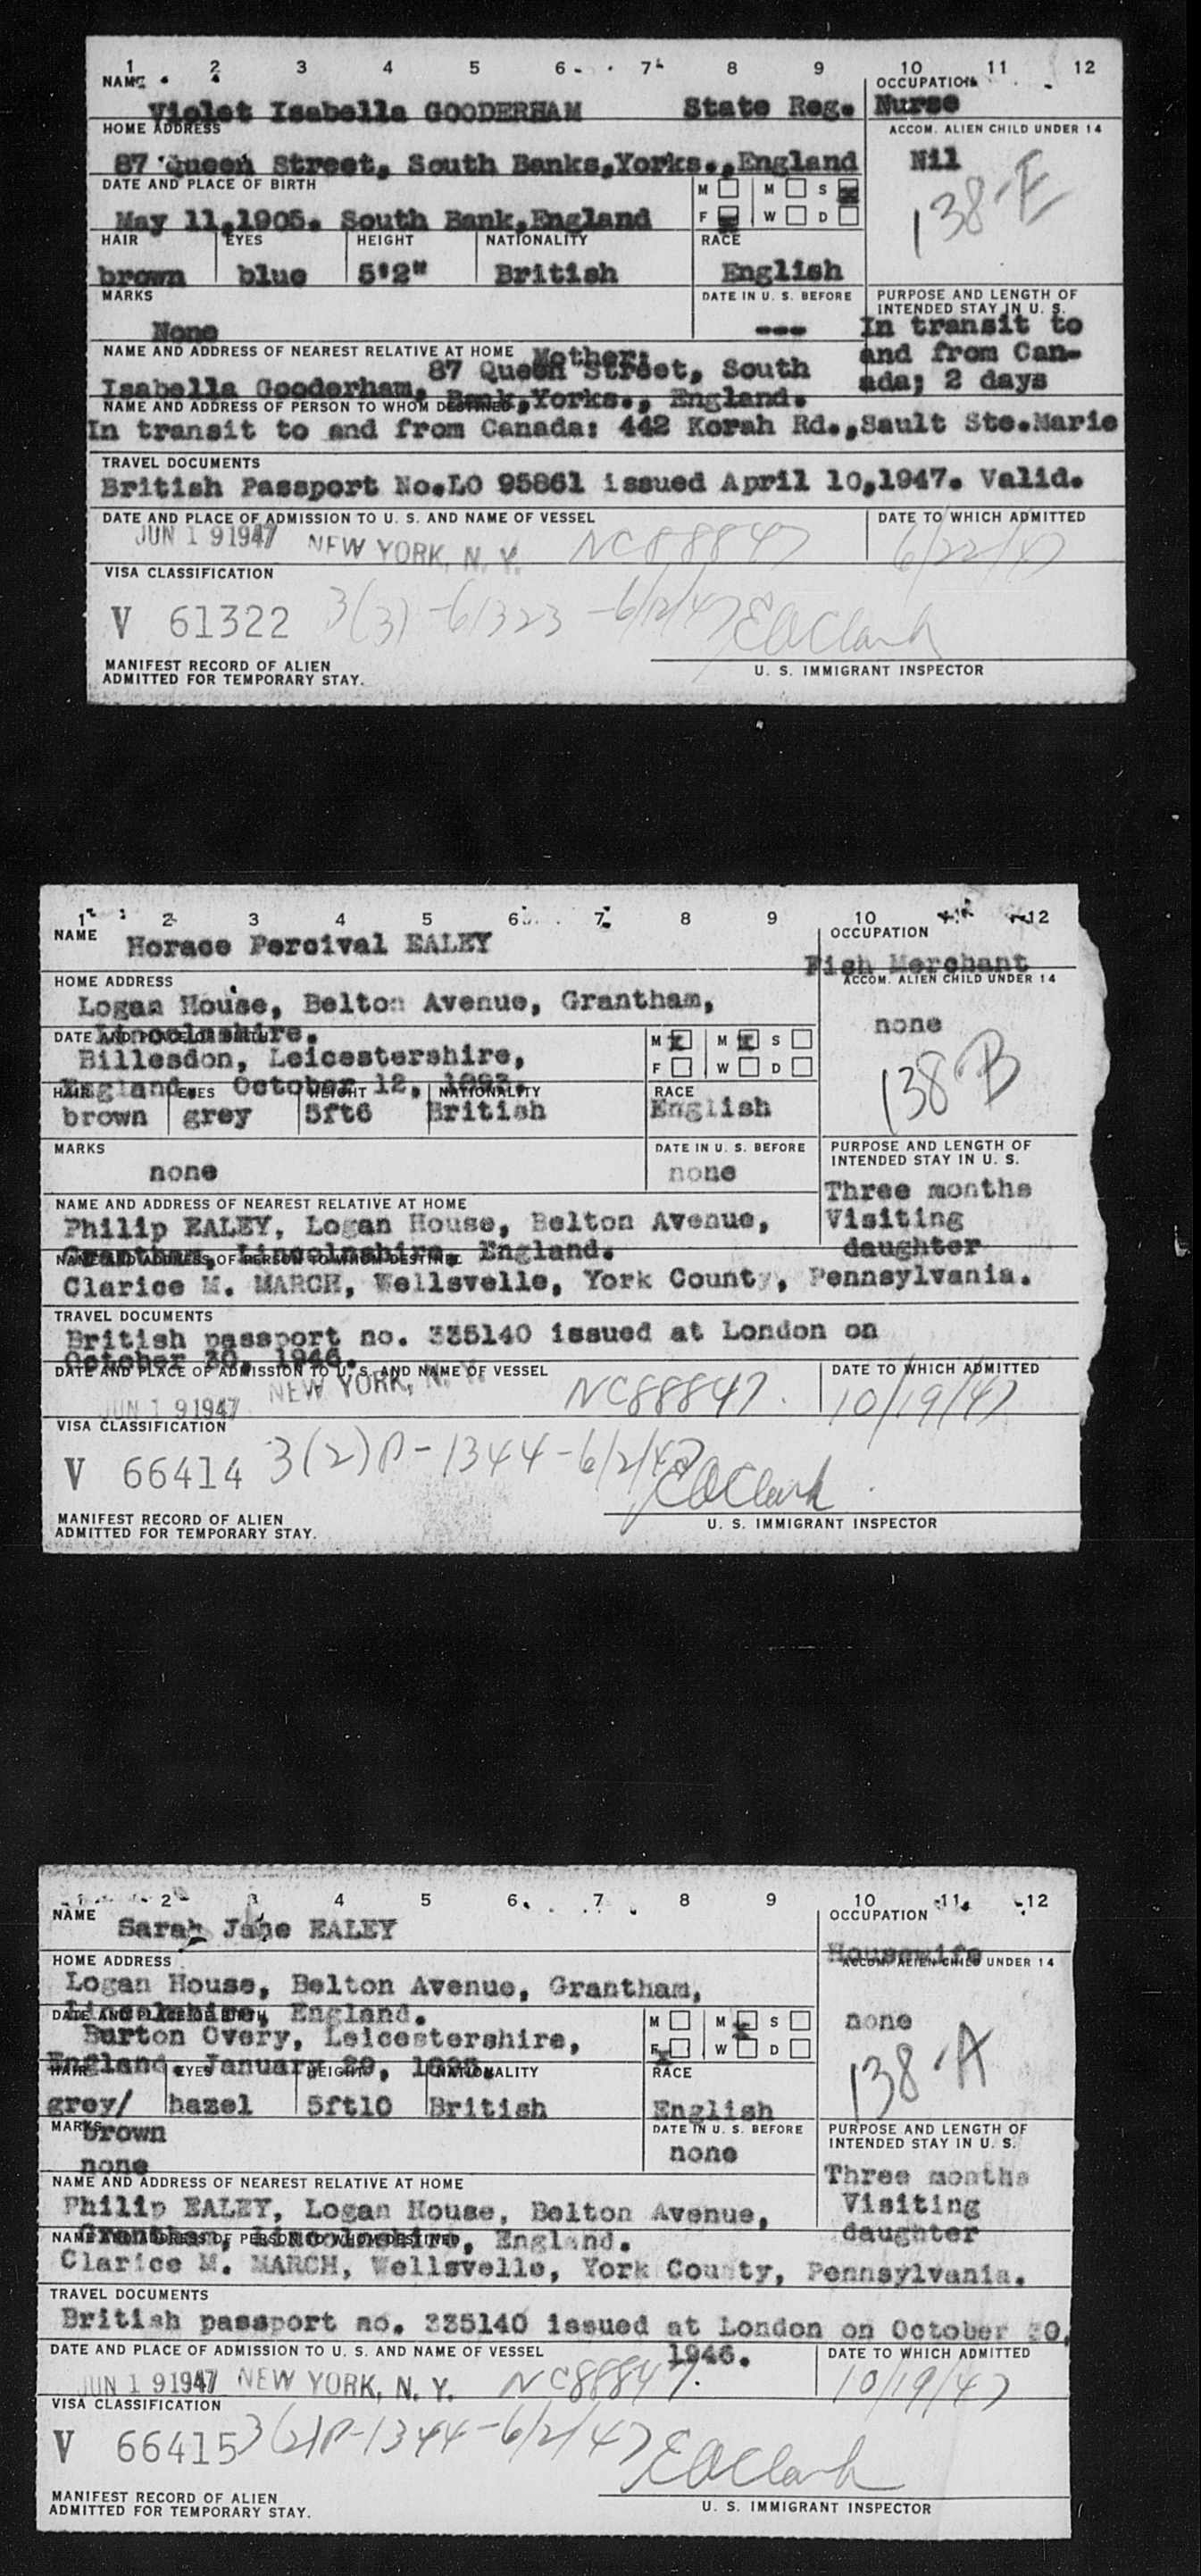 1 2 3 4 5 6 7 8 9 10 11 12
NAME OCCUPATION
Violet Isabella GOODERHAM State Reg. Nurse
HOME ADDRESS ACCOM. ALIEN CHILD UNDER 14
87 Queen Street, South Banks,Yorks.,England Nil
138-E
DATE AND PLACE OF BIRTH M M S
May 11,1905. South Bank,England F W D
HAIR EYES HEIGHT NATIONALITY RACE
brown blue 5'2" British English
MARKS DATE IN U. S. BEFORE PURPOSE AND LENGTH OF
INTENDED STAY IN U. S.
None --- In transit to
and from Can-
ada; 2 days
NAME AND ADDRESS OF NEAREST RELATIVE AT HOME Mother:
87 Queen Street, South
Isabella Gooderham, Bank,Yorks., England.
NAME AND ADDRESS OF PERSON TO WHOM DESTINED
In transit to and from Canada: 442 Korah Rd.,Sault Ste.Marie
TRAVEL DOCUMENTS
British Passport No.LO 95861 issued April 10,1947. Valid.
DATE AND PLACE OF ADMISSION TO U. S. AND NAME OF VESSEL DATE TO WHICH ADMITTED
JUN 19 1947 NEW YORK, N. Y. NC88847 6/22/47
VISA CLASSIFICATION
V 61322 3(3)-61323-6/12/47 EOClark
MANIFEST RECORD OF ALIEN
ADMITTED FOR TEMPORARY STAY.
U. S. IMMIGRANT INSPECTOR
1 2 3 4 5 6 7 8 9 10 11 12
NAME OCCUPATION
Horace Percival EALEY
Fish Merchant
HOME ADDRESS ACCOM. ALIEN CHILD UNDER 14
Logan House, Belton Avenue, Grantham, none
Lincolnshire.
138 B
DATE AND PLACE OF BIRTH M M S
Billesdon, Leicestershire, F W D
England. October 12,
HAIR EYES HEIGHT NATIONALITY RACE
brown grey 5ft6 British English
MARKS DATE IN U. S. BEFORE PURPOSE AND LENGTH OF
INTENDED STAY IN U. S.
none none Three months
Visiting
daughter
NAME AND ADDRESS OF NEAREST RELATIVE AT HOME
Philip EALEY, Logan House, Belton Avenue,
Grantham, Lincolnshire, England.
NAME AND ADDRESS OF PERSON TO WHOM DESTINED
Clarice M. MARCH, Wellsvelle, York County, Pennsylvania.
TRAVEL DOCUMENTS
British passport no. 335140 issued at London on
October 30, 1946.
DATE AND PLACE OF ADMISSION TO U. S. AND NAME OF VESSEL DATE TO WHICH ADMITTED
JUN 19 1947 NEW YORK, N. Y. NC88847. 10/19/47
VISA CLASSIFICATION
V 66414 3(2)P-1344-6/2/47 EOClark
MANIFEST RECORD OF ALIEN
ADMITTED FOR TEMPORARY STAY.
U. S. IMMIGRANT INSPECTOR
1 2 3 4 5 6 7 8 9 10 11 12
NAME OCCUPATION
Sarah Jane EALEY
Housewife
HOME ADDRESS ACCOM. ALIEN CHILD UNDER 14
Logan House, Belton Avenue, Grantham,
Lincolnshire, England. none
138-A
DATE AND PLACE OF BIRTH M M S
Burton Overy, Leicestershire, F W D
England. January 29,
HAIR EYES HEIGHT NATIONALITY RACE
grey/ hazel 5ft10 British English
brown
MARKS DATE IN U. S. BEFORE PURPOSE AND LENGTH OF
INTENDED STAY IN U. S.
none none Three months
Visiting
daughter
NAME AND ADDRESS OF NEAREST RELATIVE AT HOME
Philip EALEY, Logan House, Belton Avenue,
Grantham, Lincolnshire, England.
NAME AND ADDRESS OF PERSON TO WHOM DESTINED
Clarice M. MARCH, Wellsvelle, York County, Pennsylvania.
TRAVEL DOCUMENTS
British passport no. 335140 issued at London on October 30,
1946.
DATE AND PLACE OF ADMISSION TO U. S. AND NAME OF VESSEL DATE TO WHICH ADMITTED
JUN 19 1947 NEW YORK, N. Y. NC88847. 10/19/47
VISA CLASSIFICATION
V 66415 3(2)P-1344-6/2/47 EOClark
MANIFEST RECORD OF ALIEN
ADMITTED FOR TEMPORARY STAY.
U. S. IMMIGRANT INSPECTOR